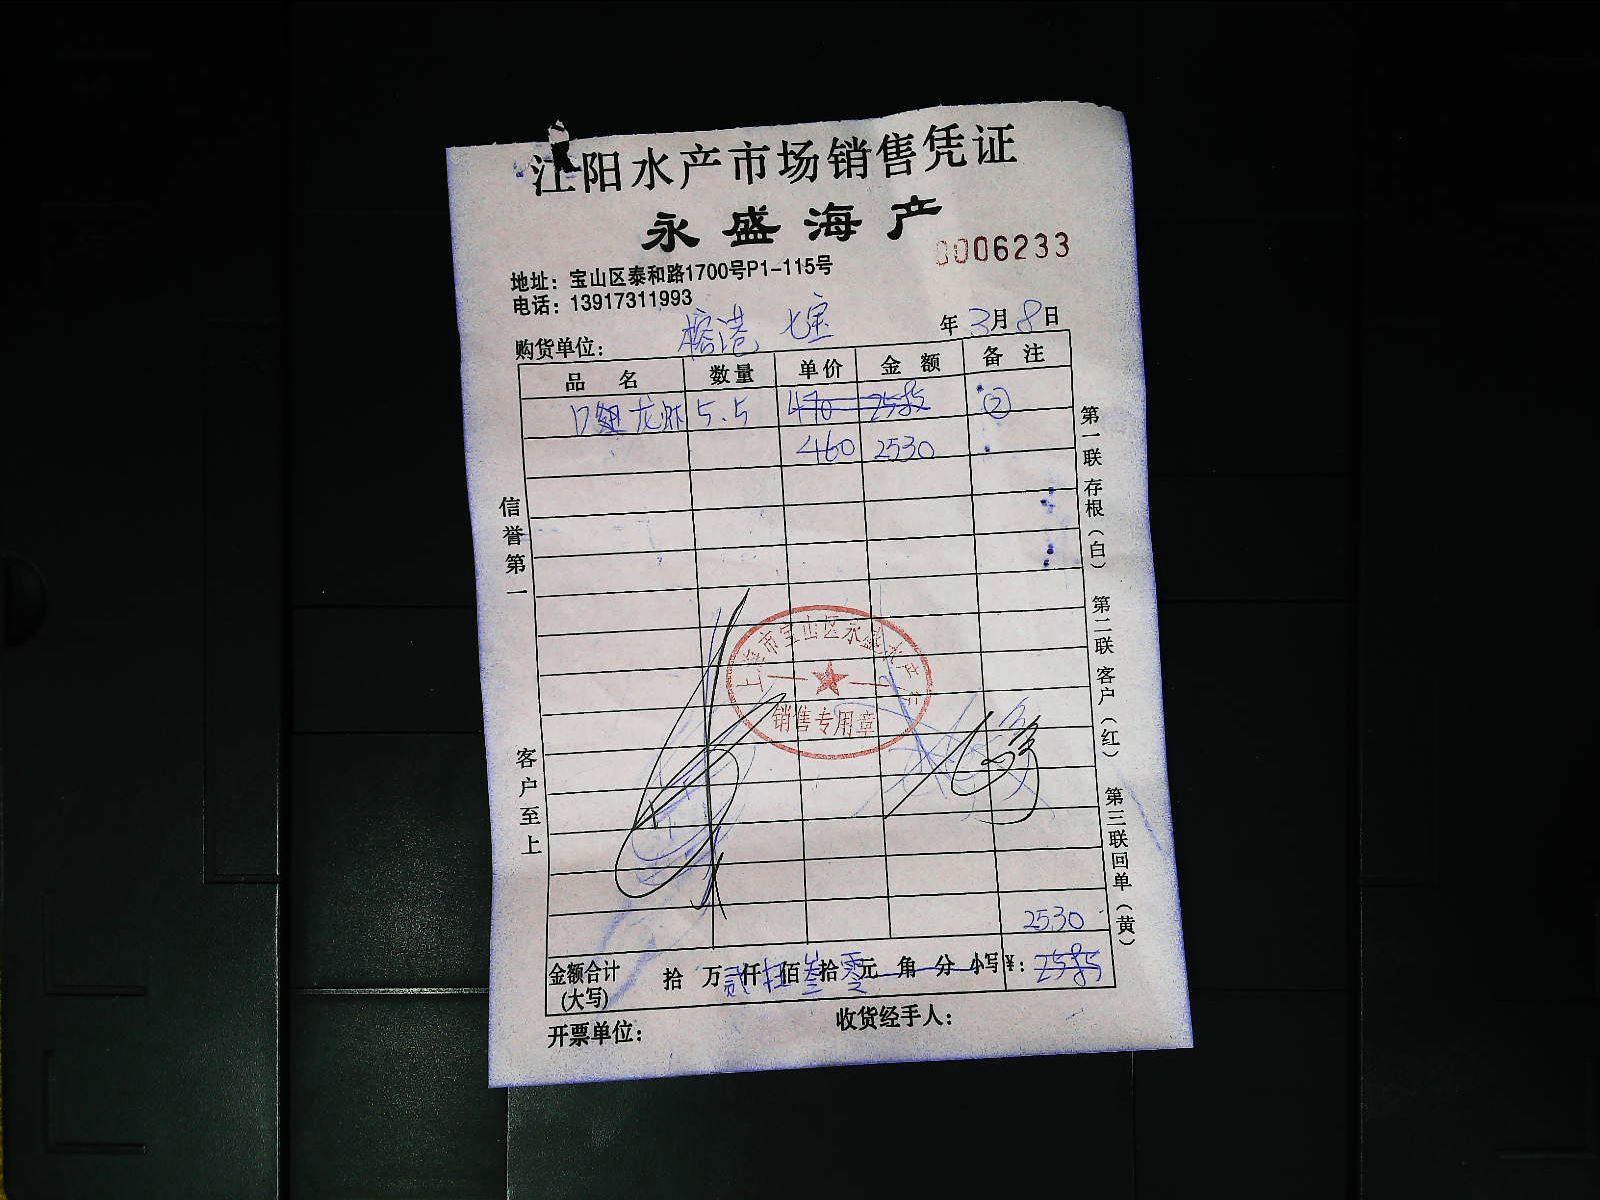 江阳水产市场销售凭证
永盛海产
0006233
地址：宝山区泰和路1700号P1-115号
电话：13917311993
购货单位： 榕港 七宝 年 3月8日
品名 数量 单价 金额 备注
龙虾 5.5 470 2585 ②
460 2530
信誉第一
客户至上
第一联 存根（白） 第二联 客户（红） 第三联 回单（黄）
上海市宝山区永盛水产行
销售专用章
2530
金额合计（大写） 拾 万 贰仟 伍佰 叁拾 零元 角 分 小写¥： 2585
开票单位： 收货经手人：